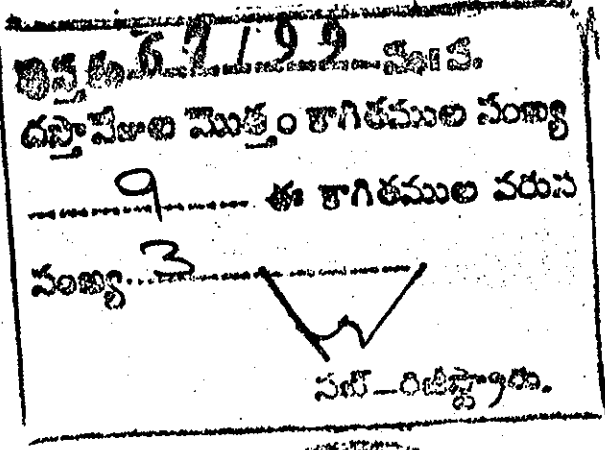 67/99
దస్తావేజుల మొత్తం కాగితముల సంఖ్య
9 ఈ కాగితముల వరుస
సంఖ్య 3
సబ్-రిజిస్ట్రారు.